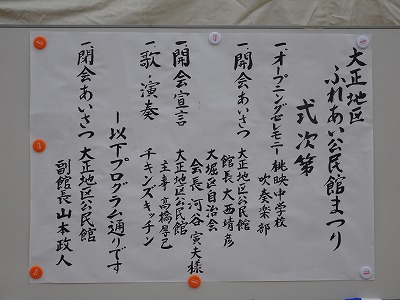 大正地区
ふれあい公民館まつり
式次第
一オープニングセレモニー 桃映中学校
吹奏楽部
一開会あいさつ 大正地区公民館
館長 大西靖彦
大堀区自治会
会長 河谷寅夫様
一開会宣言 大正地区公民館
主事 高橋厚己
一歌・演奏 チキンズキッチン
ー以下プログラム通りです
一閉会あいさつ 大正地区公民館
副館長 山本政人